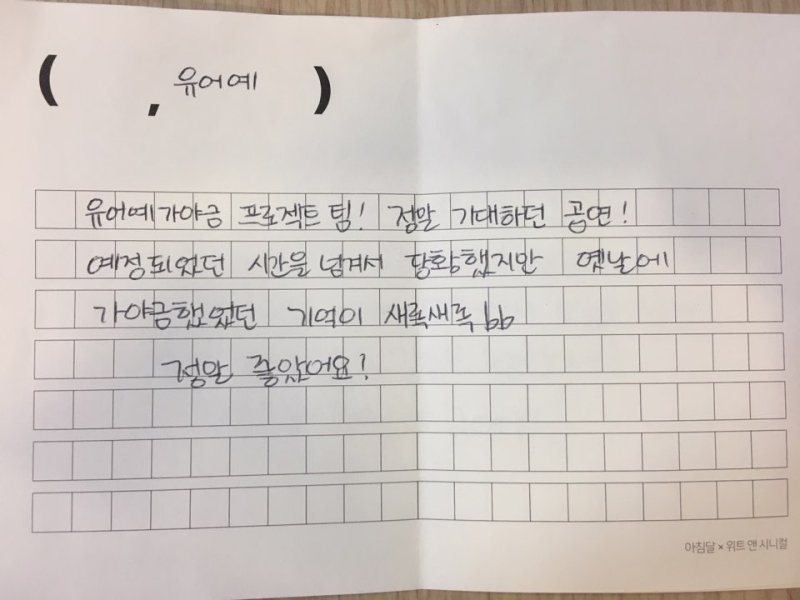 ( , 유어예 )
유어예가야금 프로젝트 팀! 정말 기대하던 공연!
예정되었던 시간을 넘겨서 당황했지만 옛날에
가야금했었던 기억이 새록새록 bb
정말 좋았어요!
아침달 × 위트 앤 시니컬